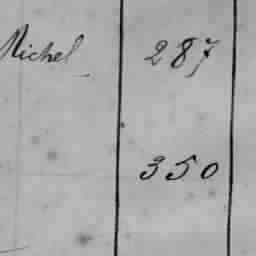 Michel 287
350